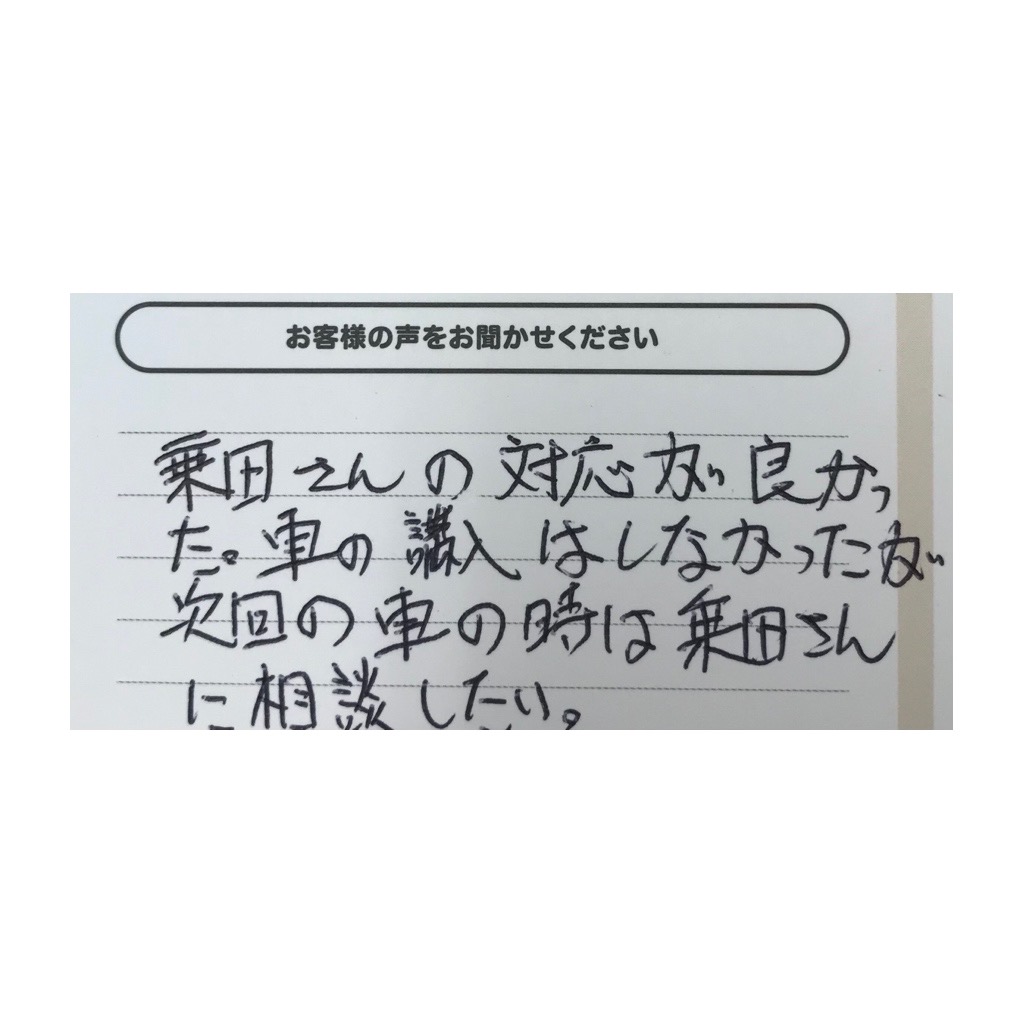 お客様の声をお聞かせください
乗田さんの対応が良かっ
た。車の講入はしなかったが
次回の車の時は乗田さん
に相談したい。